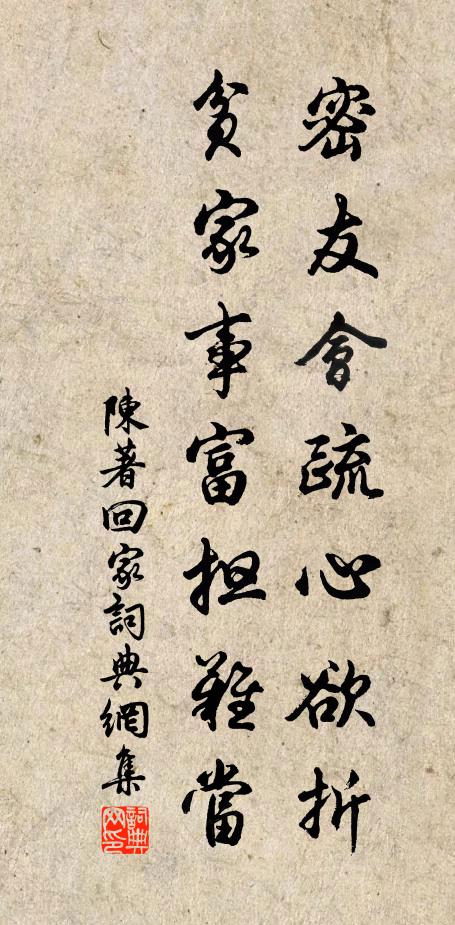 密友會疏心欲折
貧家事富担難當
陳著回家詞典網集
詞典网印